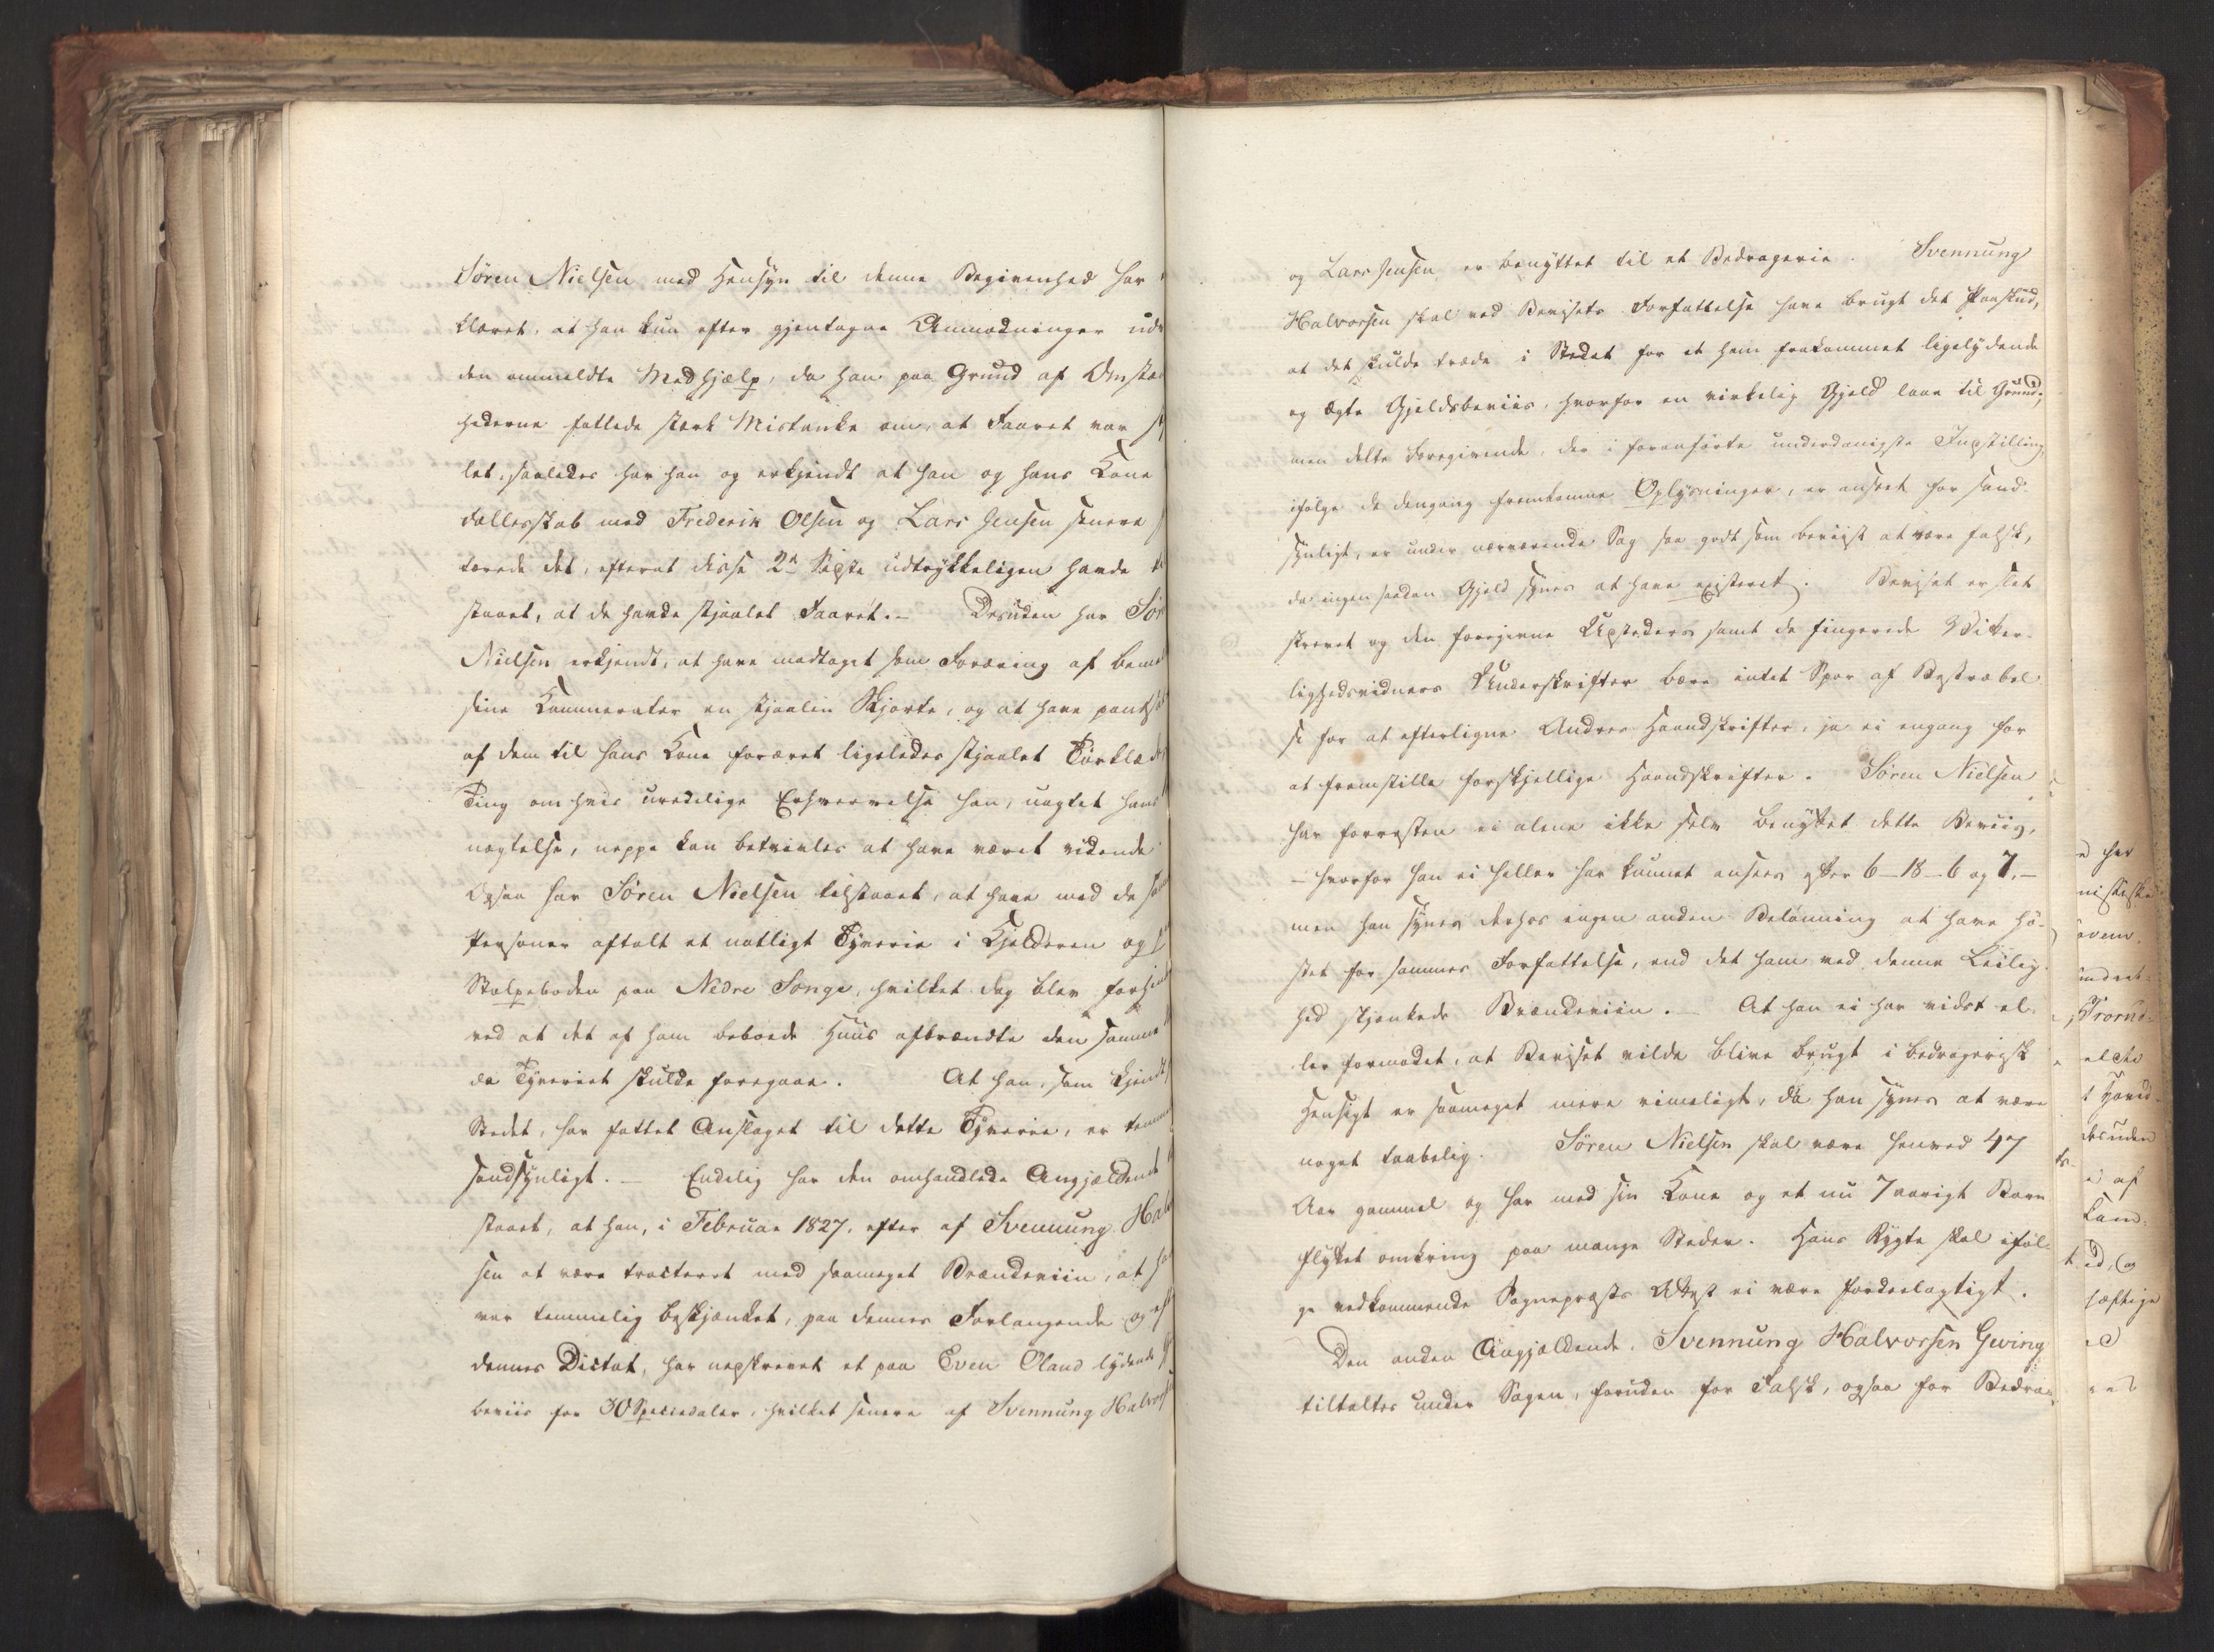 Søren Nielsen med Hensyn til denne Begivenhed har
klaret, at han kun efter gjentagne Anmodninger
den ommeldte Medhjælp, da han paa Grund af
hederne fattede stærk Mistanke om, at Faaret var
let, saaledes har han og erkjendt at han og hans Kone
Fællesskab med Frederik Olsen og Lars Jensen senere
tærede det, efterat disse 2de Sidste udtrykkeligen havde
staaet, at de havde stjaalet Faaret.– Desuden har
Nielsen erkjendt, at have modtaget som Foræring af
sine Kammerater en stjaalen Skjorte, og at have
af dem til hans Kone foræret ligeledes stjaalet
Ting om hvis uredelige Erhvervelse han, uagtet hans
nægtelse, neppe kan betvivles at have været vidende
Ogsaa har Søren Nielsen tilstaaet, at have med de
Personer aftalt et natligt Tyverie i Kjelderen og
Stolpeboden paa Nedre Songe, hvilket dog blev
ved at det af ham beboede Huus afbrændte den samme
da Tyveriet skulde foregaae. At han, som
Stedet, har fattet Anslaget til dette Tyverie, er
sandsynligt.– Endelig har den omhandlede Angjældende
staaet, at han, i Februar 1827, efter af Svennung
sen at være tracteret med saameget Brændeviin, at
var temmelig beskjænket, paa dennes Forlangende og
dennes Dictat, har nedskrevet et paa Even Øland lydende
beviis for 30 Speciedaler, hvilket senere af Svennung
og Lars Jensen er benyttet til et Bedragerie. Svennung
Halvorsen skal ved Bevisets Forfattelse have brugt det Paaskud,
at det skulde træde i Stedet for et ham frakommet ligelydende
og ægte Gjeldsbeviis, hvorfor en virkelig Gjeld laae til Grund;
men dette Foregivende, der i foranførte underdanigste Indstilling,
ifølge de dengang fremkomne Oplysninger, er anseet for sand-
synligt, er under nærværende Sag saa godt som beviist at være falsk,
da ingen saadan Gjeld synes at have existeret. Beviset er slet
skrevet og den foregivne Udsteders samt de fingerede Vitter-
lighedsvidners Underskrifter bære intet Spor af Bestræbel-
se for at efterligne Andres Haandskrifter, ja ei engang for
at fremstille forskjellige Haandskrifter. Søren Nielsen
har forresten ei alene ikke selv benyttet dette Beviis,
– hvorfor han ei heller har kunnet ansees efter 6–18–6 og 7,–
men han synes derhos ingen anden Belønning at have hø-
stet for sammes Forfattelse, end det ham ved denne Leilig-
hed skjænkede Brændeviin.– At han ei har vidst el-
ler formodet, at Beviset vilde blive brugt i bedragerisk
Hensigt er saameget mere rimeligt, da han synes at være
noget taabelig. Søren Nielsen skal være henved 47
Aar gammel og har med sin Kone og et nu 7 aarigt Barn
flyttet omkring paa mange Steder. Hans Rygte skal iføl-
ge vedkommende Sognepræsts Attest ei være fordeelagtigt.
Den anden Angjældende, Svennung Halvorsen Gjeving
tiltaltes under Sagen, foruden for Falsk, ogsaa for Bedra-